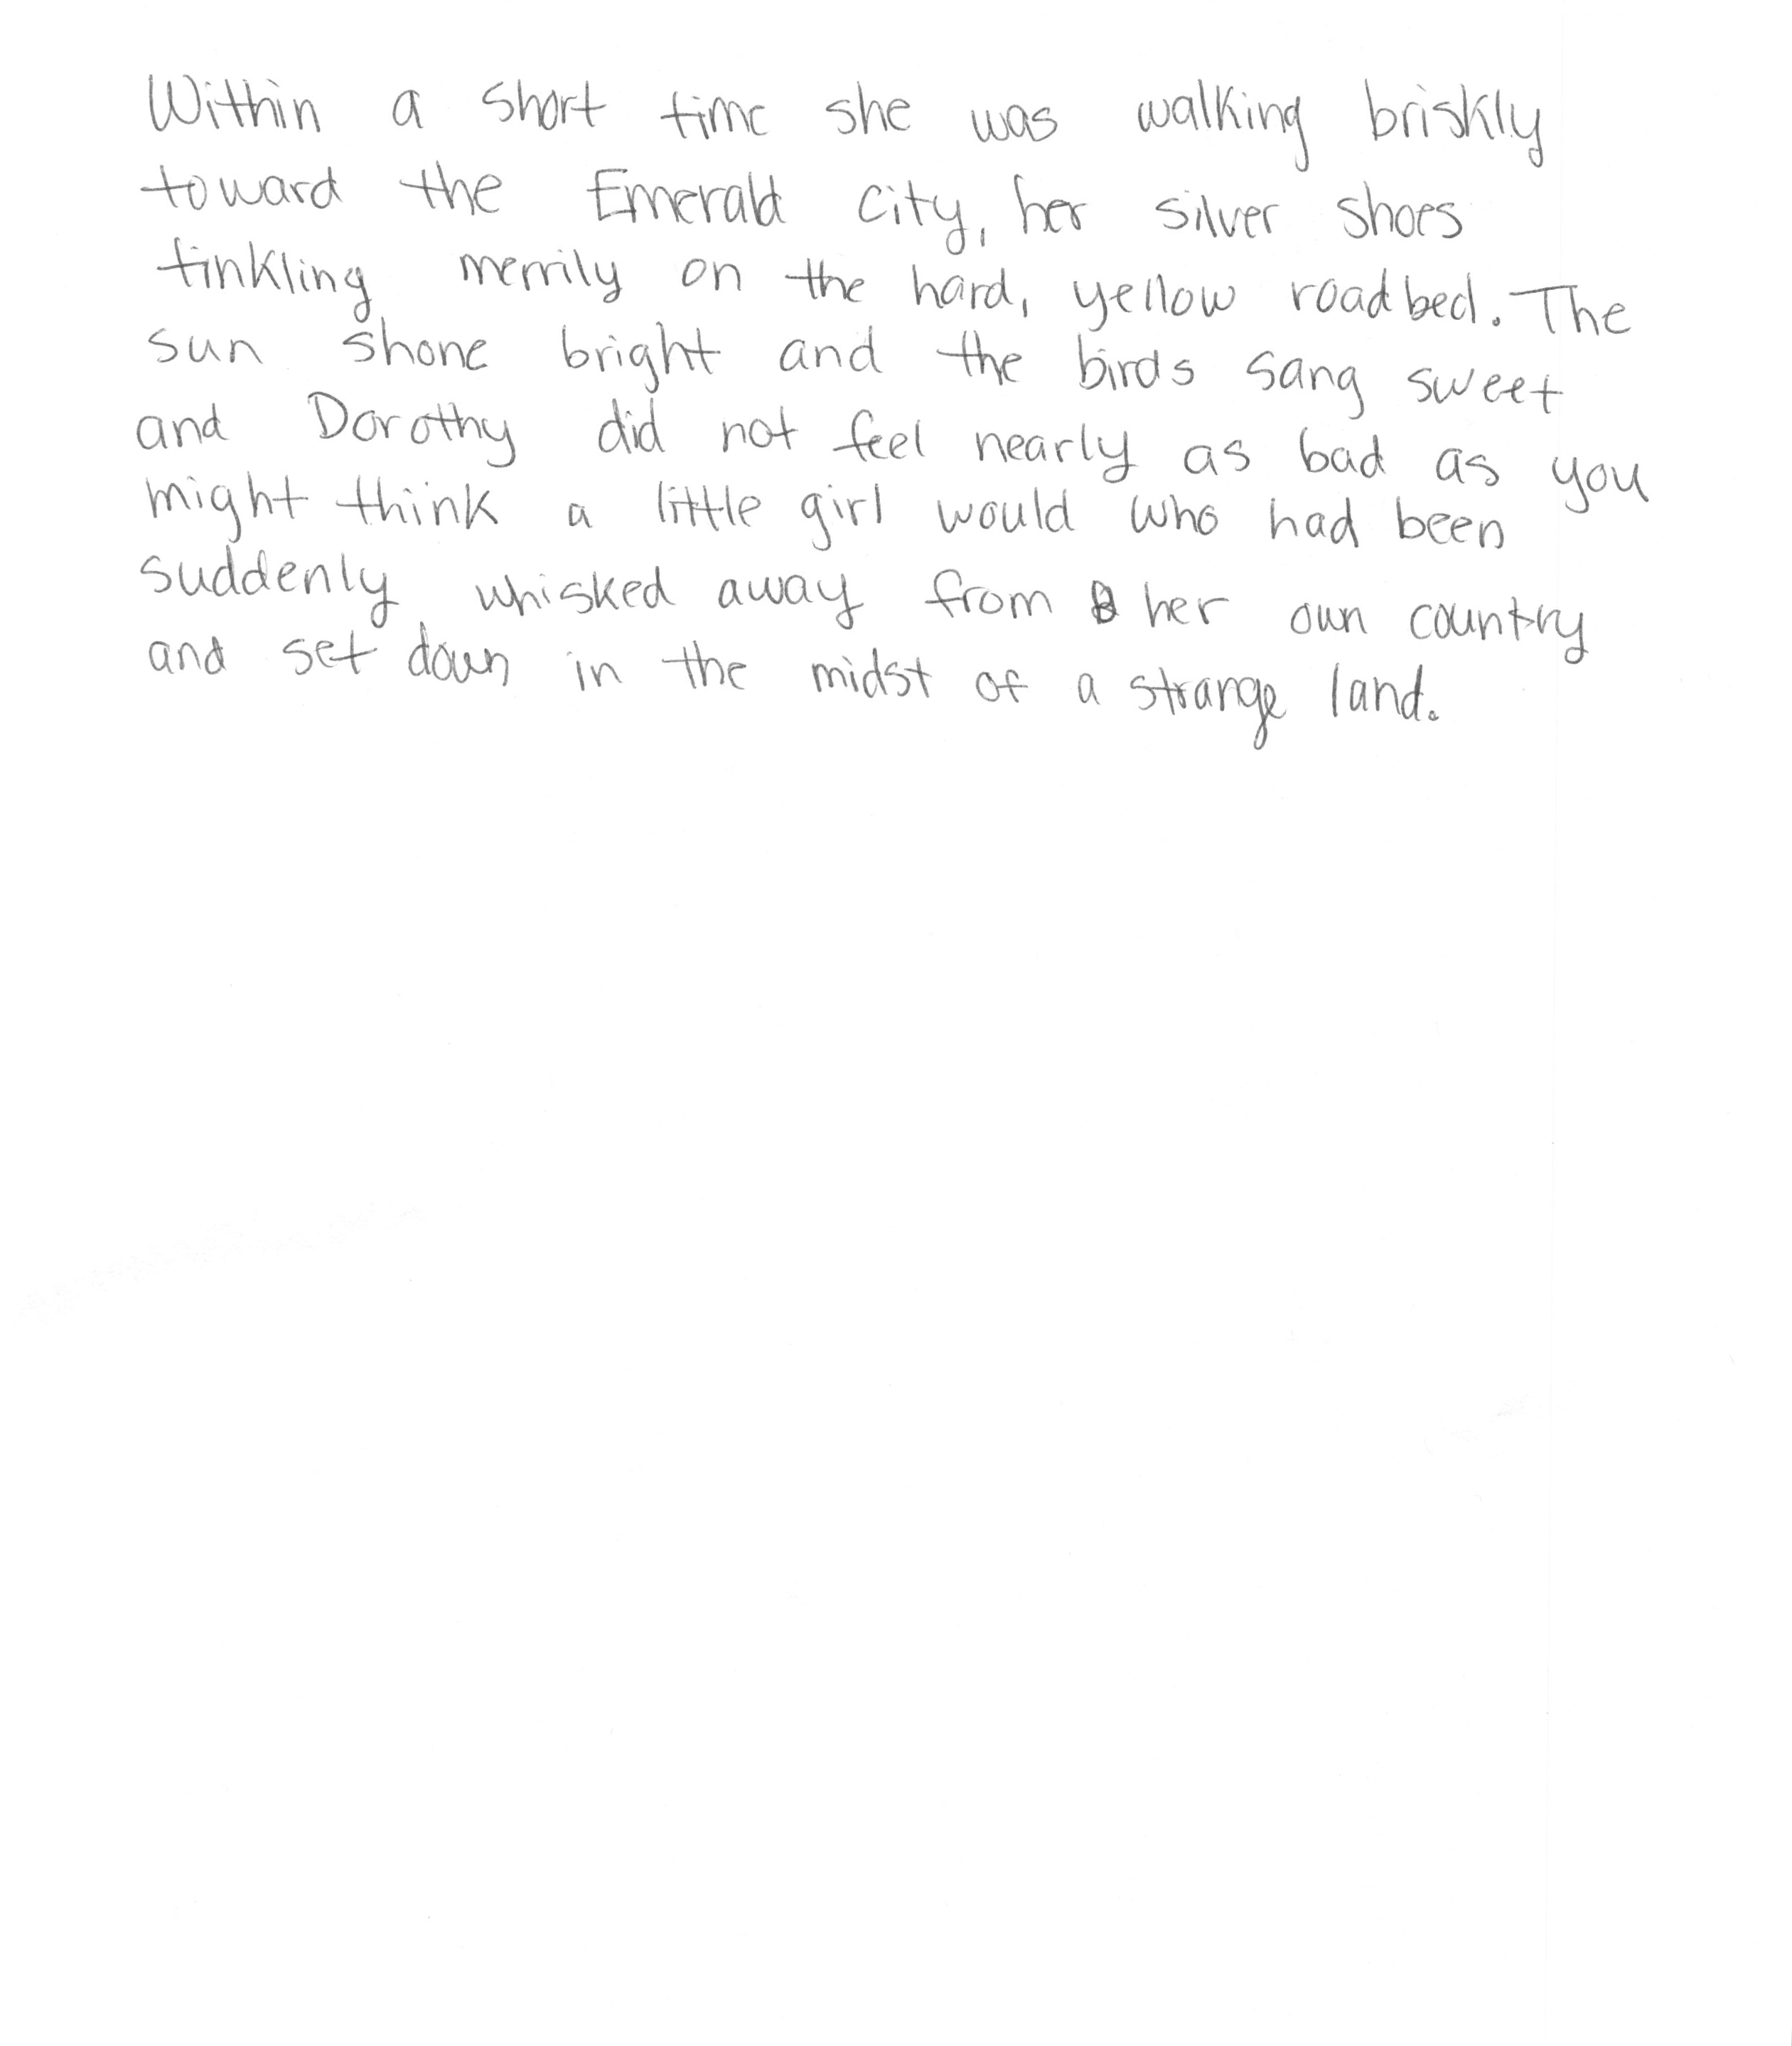 Within a short time she was walking briskly
toward the Emerald City, her silver shoes
tinkling merrily on the hard, yellow roadbed. The
sun shone bright and the birds sang sweet
and Dorothy did not feel nearly as bad as you
might think a little girl would who had been
suddenly whisked away from her own country
and set down in the midst of a strange land.